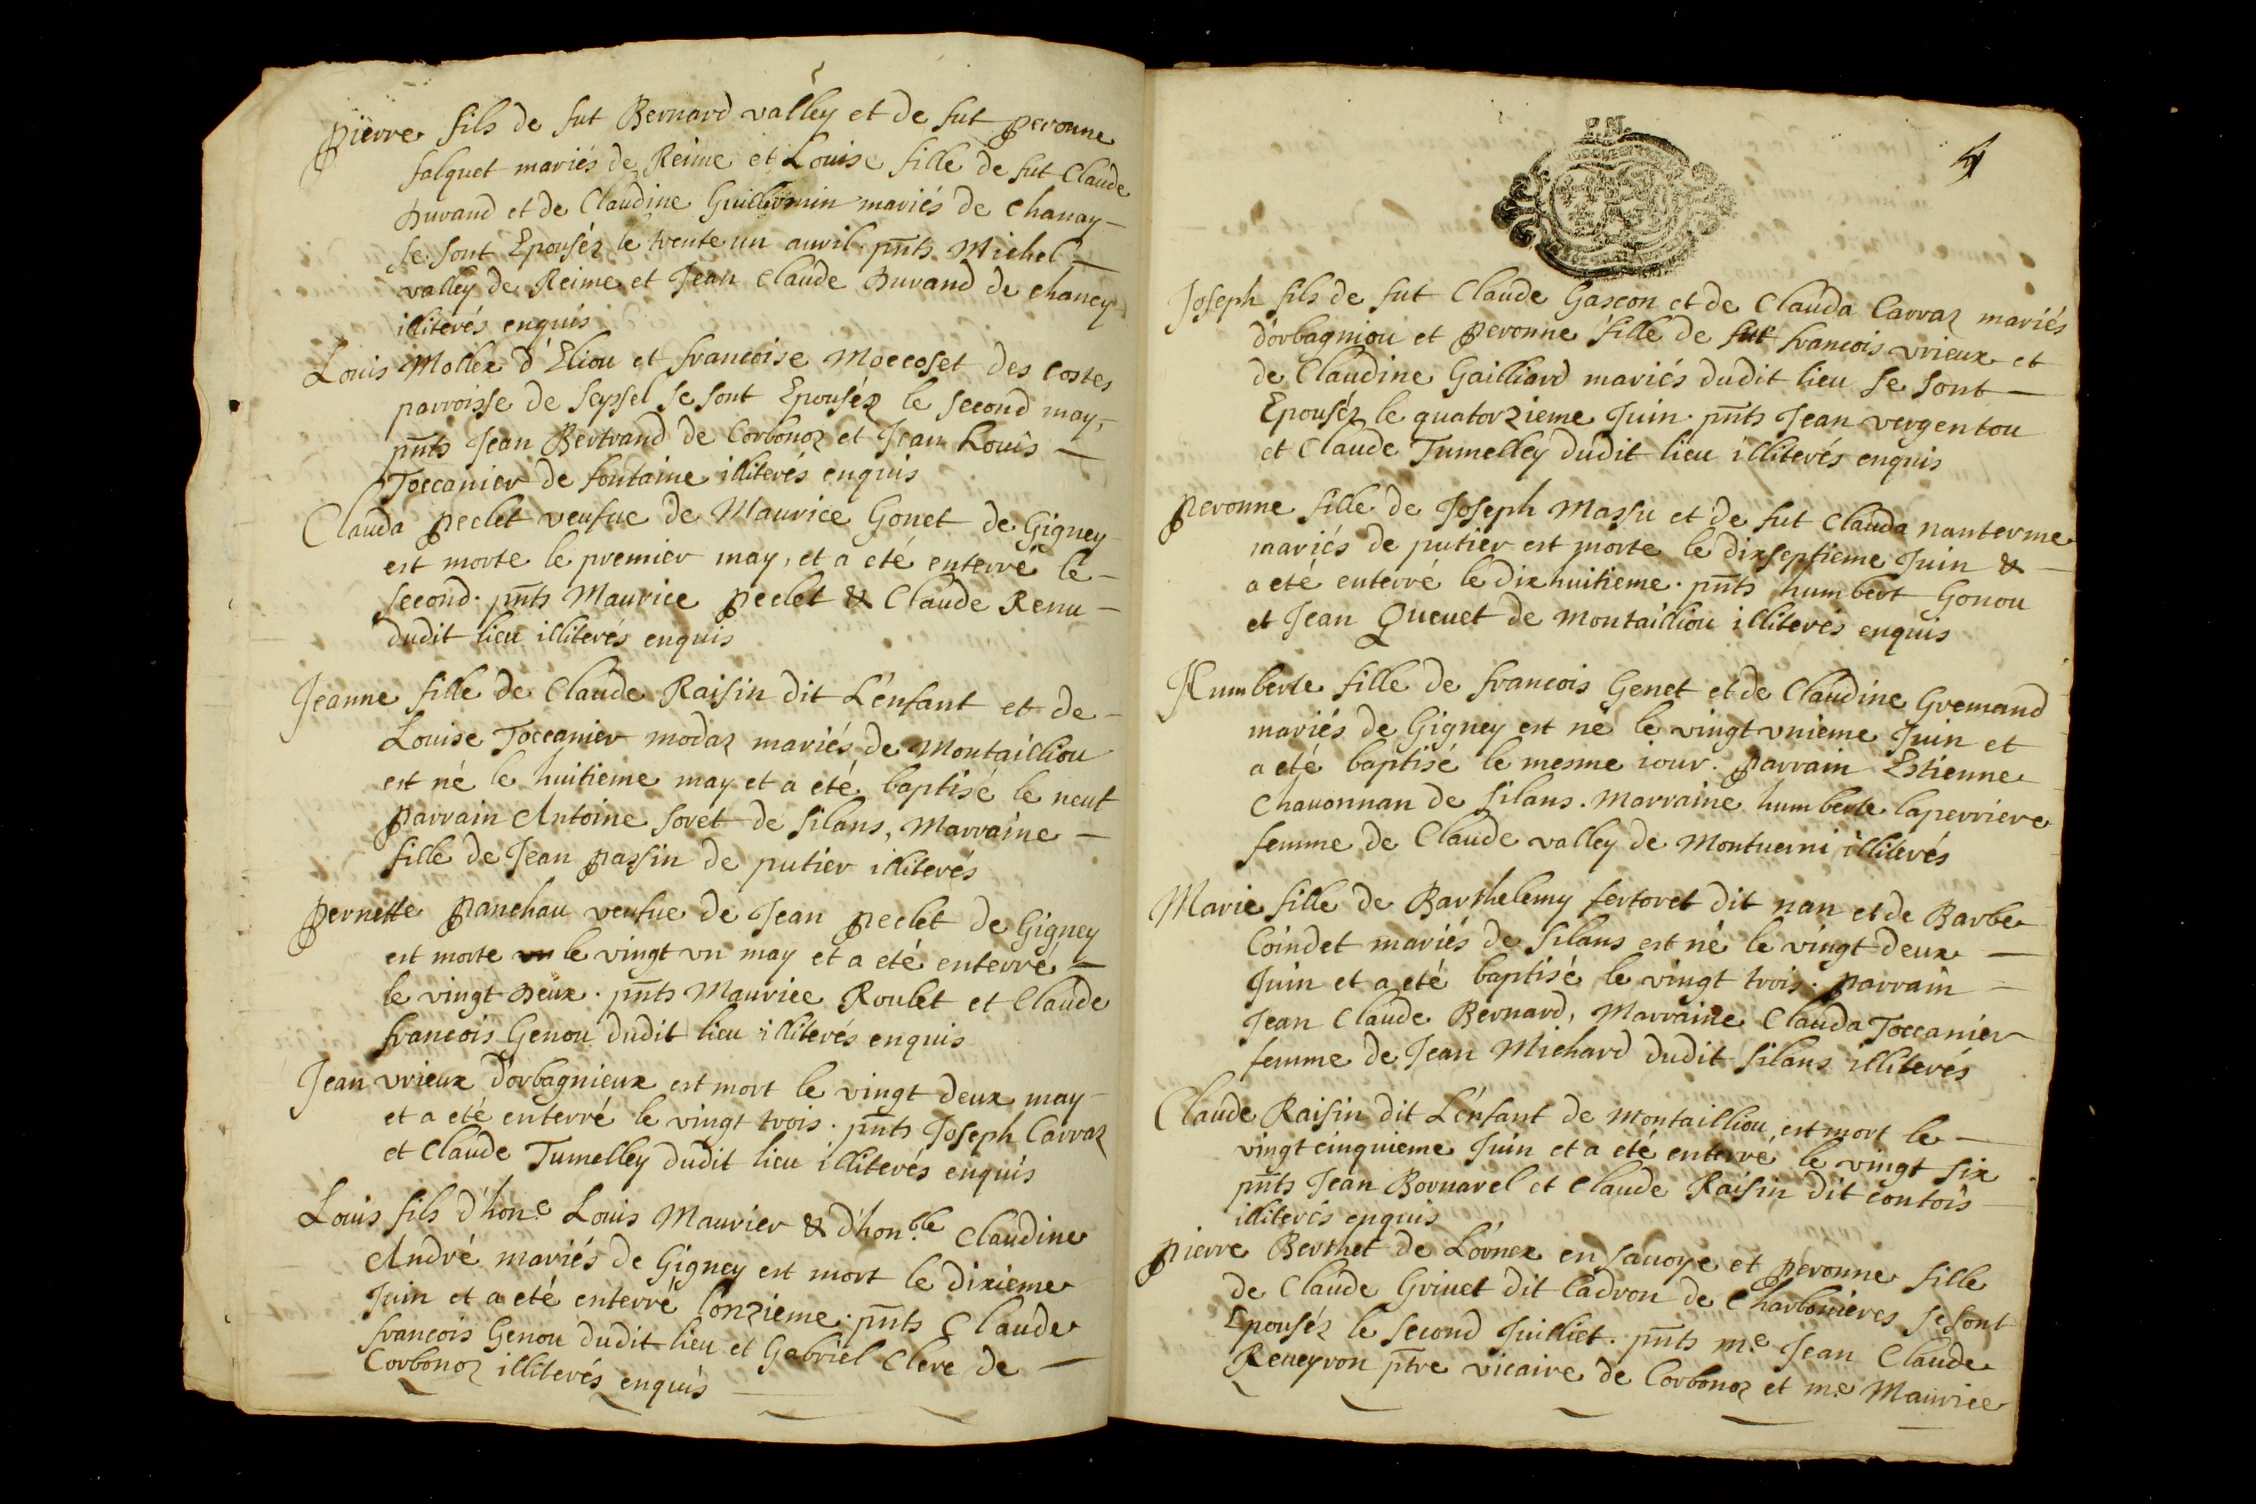 Pierre fils de fut Bernard valley et de fut peronne
falquet mariés de Reime et Louise fille de fut Claude
Durand et de Claudine Guillermin mariés de chanay
se sont Epouséz le trente un auril. pnts Michel
valley de Reime et Jean Claude Durand de chaney
illiterés enquis
Louis Mollex d'Eliou et francoise Moccoset des costes
parroisse de seyssel se sont Epouséz le second may,
pnts Jean Bertrand de Corbonoz et Jean Louis
Toccanier de fontaine illiterés enquis
Clauda peclet veufue de Maurice Gonet de Gigney
est morte le premier may, et a eté enterré le
second. pnts Maurice peclet & Claude Renu
dudit lieu illiterés enquis
Jeanne fille de Claude Raisin dit L'enfant et de
Louise Toccanier modaz mariés de Montailliou
est né le huitieme may et a eté baptisé le neuf
parrain Antoine soret de silans, Marraine
fille de Jean passin de putier illiterés
pernette panchau veufue de Jean peclet de Gigney
est morte le vingt vn may et a eté enterré
le vingt deux. pnts Maurice Roulet et Claude
francois Genou dudit lieu illiterés enquis
Jean vrieux d'orbagnieux est mort le vingt deux may
et a eté enterré le vingt trois. pnts Joseph Carraz
et Claude Tumelley dudit lieu illiterés enquis
Louis fils d'hon.e Louis Maurier & d'hon.ble Claudine
André mariés de Gigney est mort le dixieme
Juin et a eté enterré l'onzieme. pnts Claude
francois Genou dudit lieu et Gabriel Clerc de
Corbonoz illiterés enquis
4
Joseph fils de fut Claude Gascon et de Clauda Carraz mariés
d'orbagniou et peronne fille de fut francois vrieux et
de Claudine Gailliard mariés dudit lieu se sont
Epouséz le quatorzieme Juin. pnts Jean vergentou
et Claude Tumelley dudit lieu illiterés enquis
peronne fille de Joseph Massu et de fut Clauda nanterme
mariés de putier est morte le dixseptieme Juin &
a eté enterré le dixhuitieme. pnts humbert Gonou
et Jean Queuet de montailliou illiterés enquis
Humberte fille de francois Genet et de Claudine Gremand
mariés de Gigney est né le vingt vnieme Juin et
a eté baptisé le mesme iour. parrain Estienne
Chauonnan de silans. Marraine humberte laperriere
femme de Claude valley de Montuerni illiterés
Marie fille de Barthelemy fertoret dit nan et de Barbe
Coindet mariés de silans est né le vingt deux
Juin et a eté baptisé le vingt trois. parrain
Jean Claude Bernard, Marraine Clauda Toccanier
femme de Jean Michard dudit silans illiterés
Claude Raisin dit L'enfant de Montailliou est mort le
vingt cinquieme Juin et a eté enterré le vingt six
pnts Jean Bornarel et Claude Raisin dit contois
illiterés enquis
pierre Berthet de Lornex en sauoye et peronne fille
de Claude Griuet dit ladron de Charbonieres se sont
Epouséz le second Juilliet. pnts m.e Jean Claude
Reneyron ptre vicaire de Corbonoz et m.e Maurice